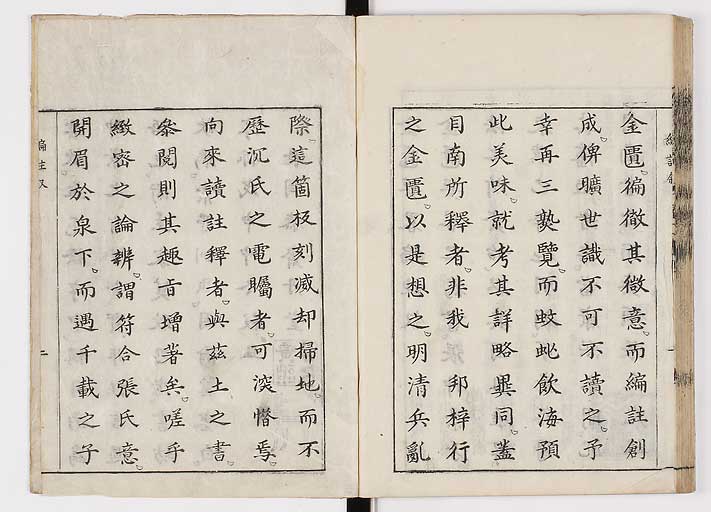 金匱徧徹其微意而編註創
成俾曠世識不可不讀之予
幸再三熟覽而蚊虻飲海預
此美味就考其詳略異同蓋
目南所釋者非我　邦梓行
之金匱以是想之明清兵亂
際這箇板刻滅却掃地而不
歷沉氏之電矚者可深憯焉
向來讀註釋者與茲土之書
叅閱則其趣旨增著矣嗟乎
緻密之論辨謂符合張氏意
開眉於泉下而遇千載之子
二